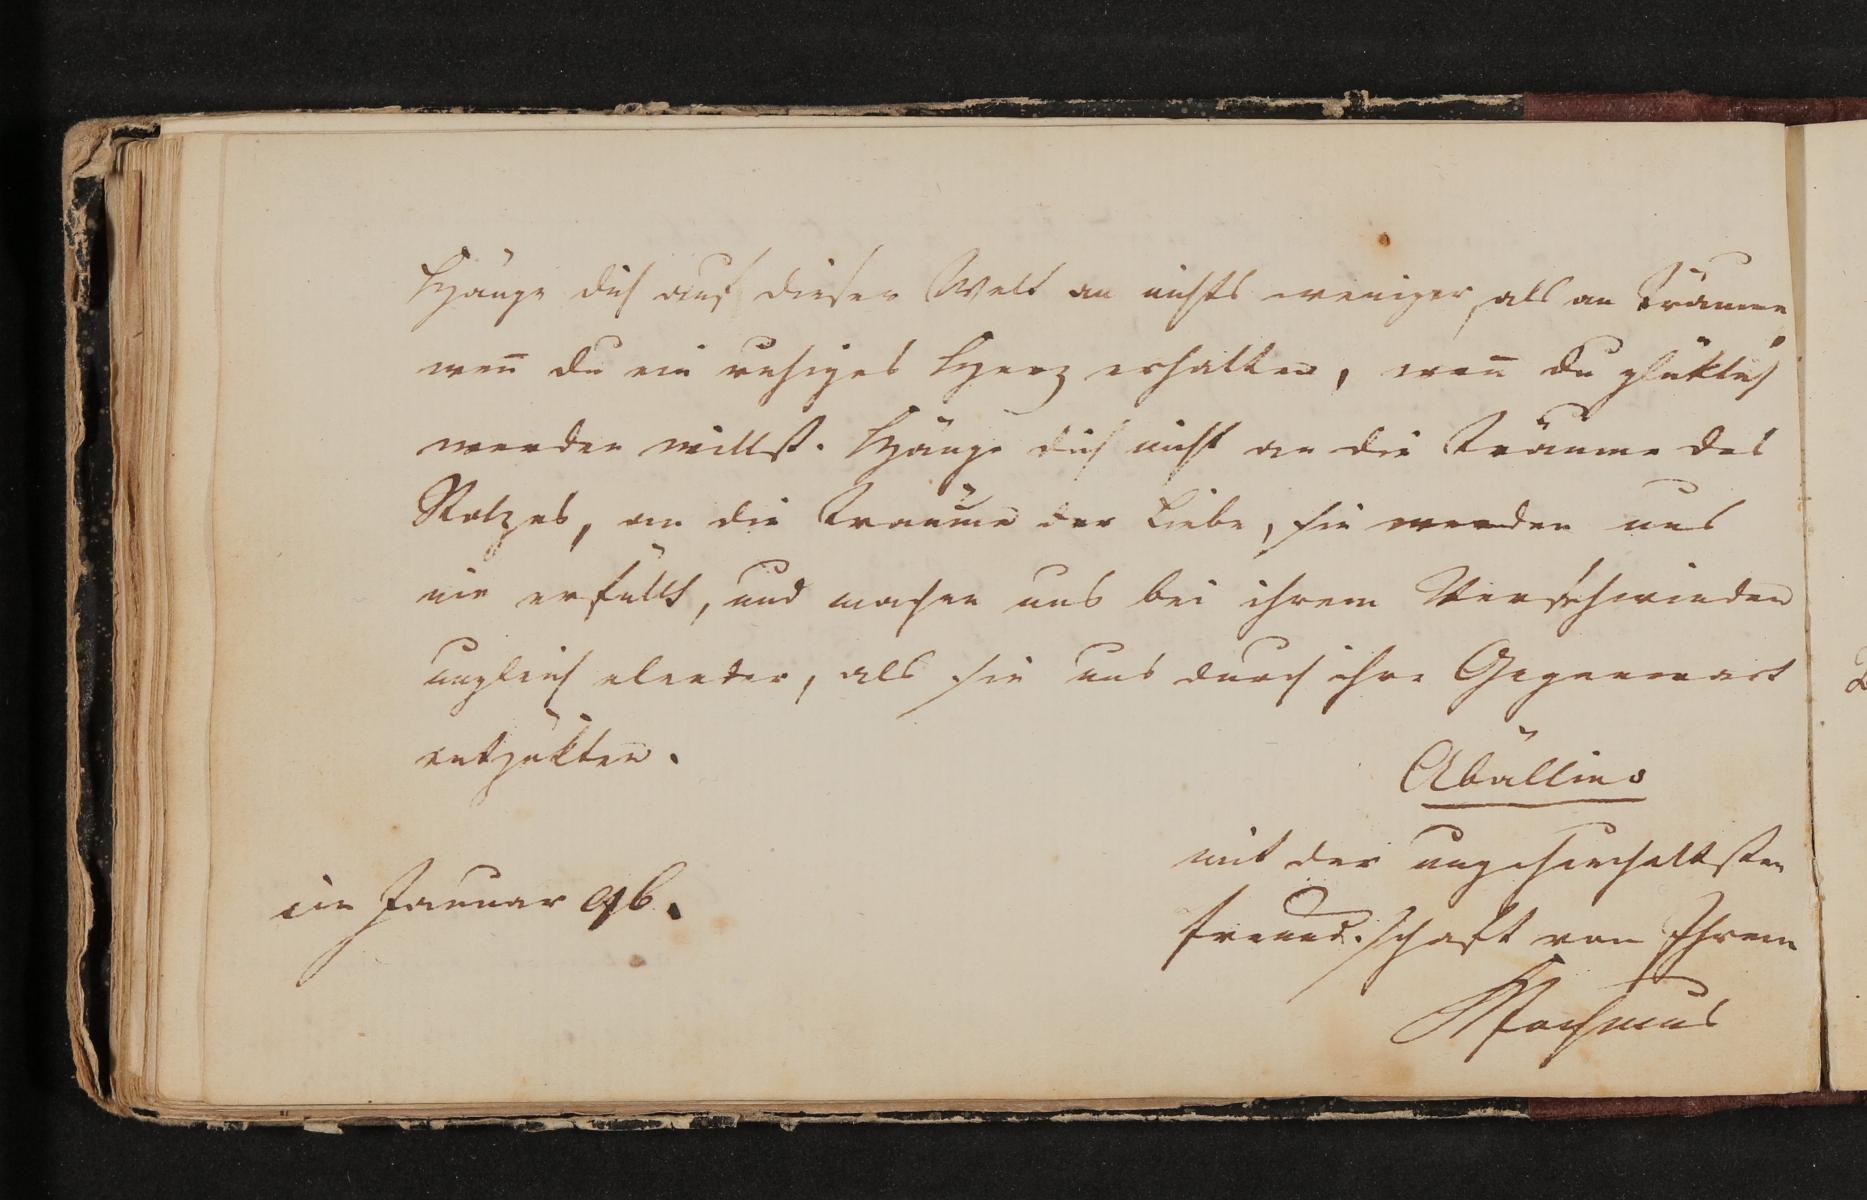 Hänge dich auf dieser Welt an nichts weniger, als an Träume,
weñ du ein ruhiges Herz erhalten, weñ du glüklich
werden willst. Hänge dich nicht an die Träume des
Stolzes, an die Träume der Liebe, sie werden uns
nie erfüllt, und machen uns bei ihrem Verschwinden
ungleich elender, als sie uns durch ihre Gegenwart
entzükten.
Abällino
mit der ungeheucheltsten
im Januar 96.
Freundschaft von Ihrem